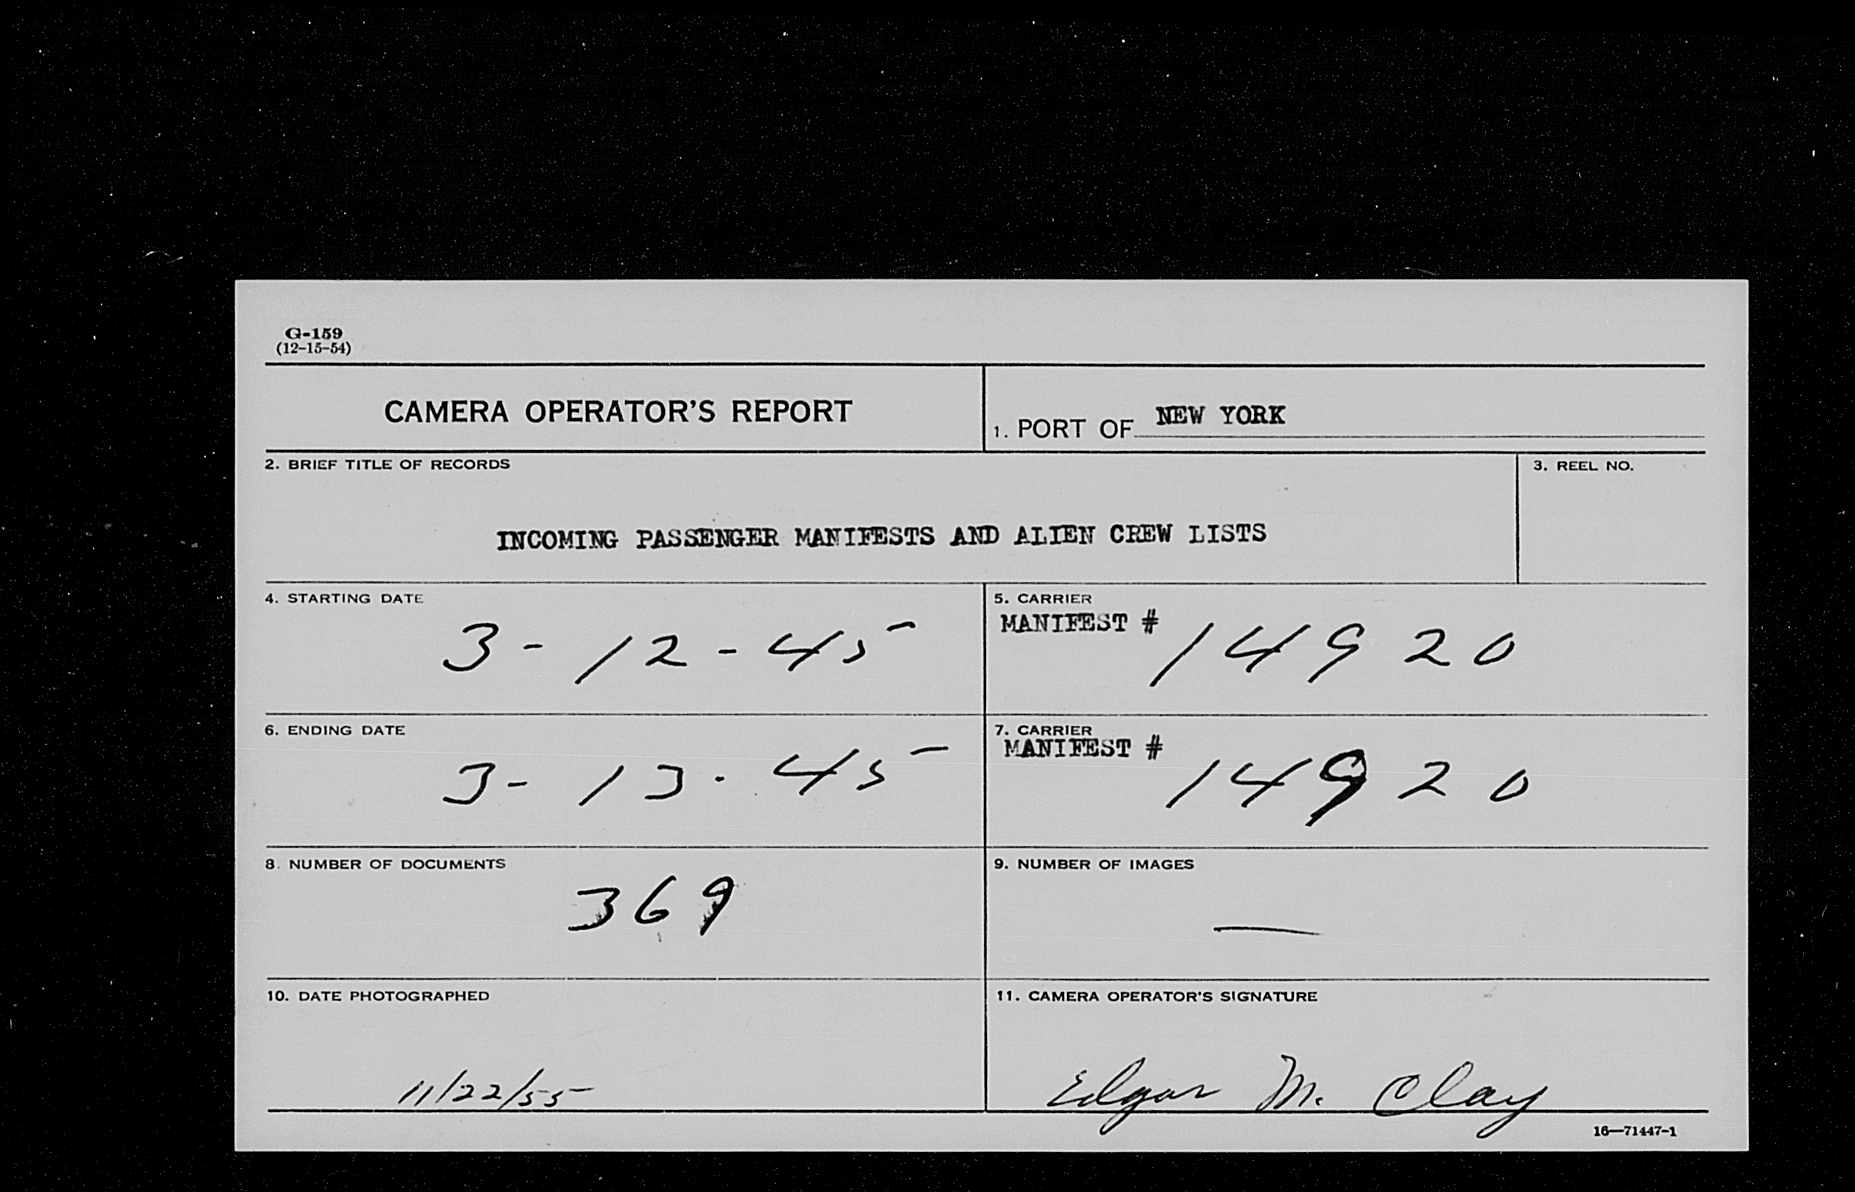 G-159
(12-15-54)
CAMERA OPERATOR'S REPORT
1. PORT OF NEW YORK
2. BRIEF TITLE OF RECORDS
INCOMING PASSENGER MANIFESTS AND ALIEN CREW LISTS
3. REEL NO.
4. STARTING DATE
3-12-45
5. CARRIER
MANIFEST # 14920
6. ENDING DATE
3-13-45
7. CARRIER
MANIFEST # 14920
8. NUMBER OF DOCUMENTS
369
9. NUMBER OF IMAGES
—
10. DATE PHOTOGRAPHED
11/22/55
11. CAMERA OPERATOR'S SIGNATURE
Edgar M. Clay
16—71447-1